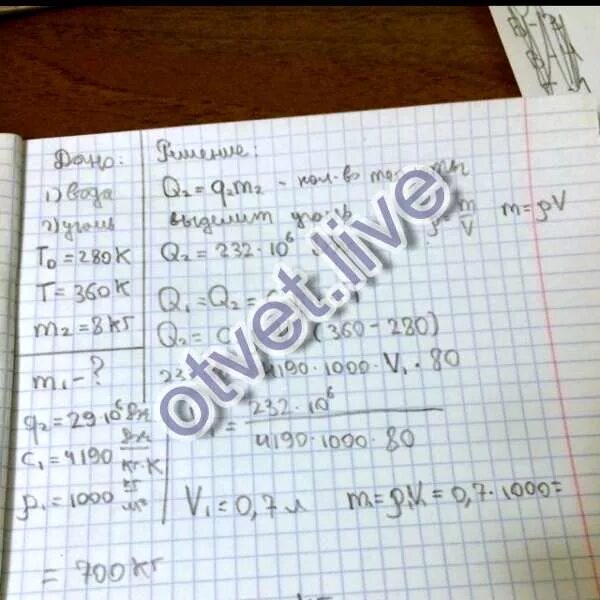 Дано:
1) вода
2) уголь
T₀ = 280 К
T = 360 К
m₂ = 8 кг
m₁ - ?
q₂ = 29·10⁶ Дж
c₁ = 4190 Дж/кг·К
ρ₁ = 1000 кг/м³
Решение:
Q₂ = q₂m₂ - кол-во
выделит уголь
m = ρV
Q₂ = 232·10⁶
Q₁ = Q₂ =
Q₂ = (360 - 280)
4190·1000·V₁·80
= 232·10⁶ / 4190·1000·80
V₁ = 0,7 л m = ρ₁V₁ = 0,7·1000 =
= 700 кг
otvet.live